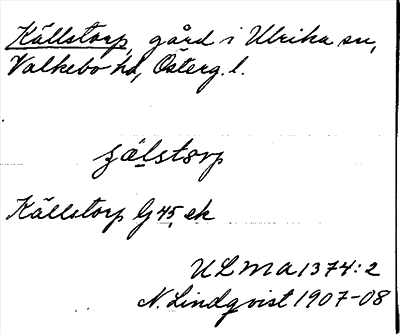 Källstorp, gård i Ulrika sn,
Valkebo hd, Österg. l.
sälstorp
Källstorp Gg 45, ek
ULMA 1374:2
N. Lindqvist 1907-08